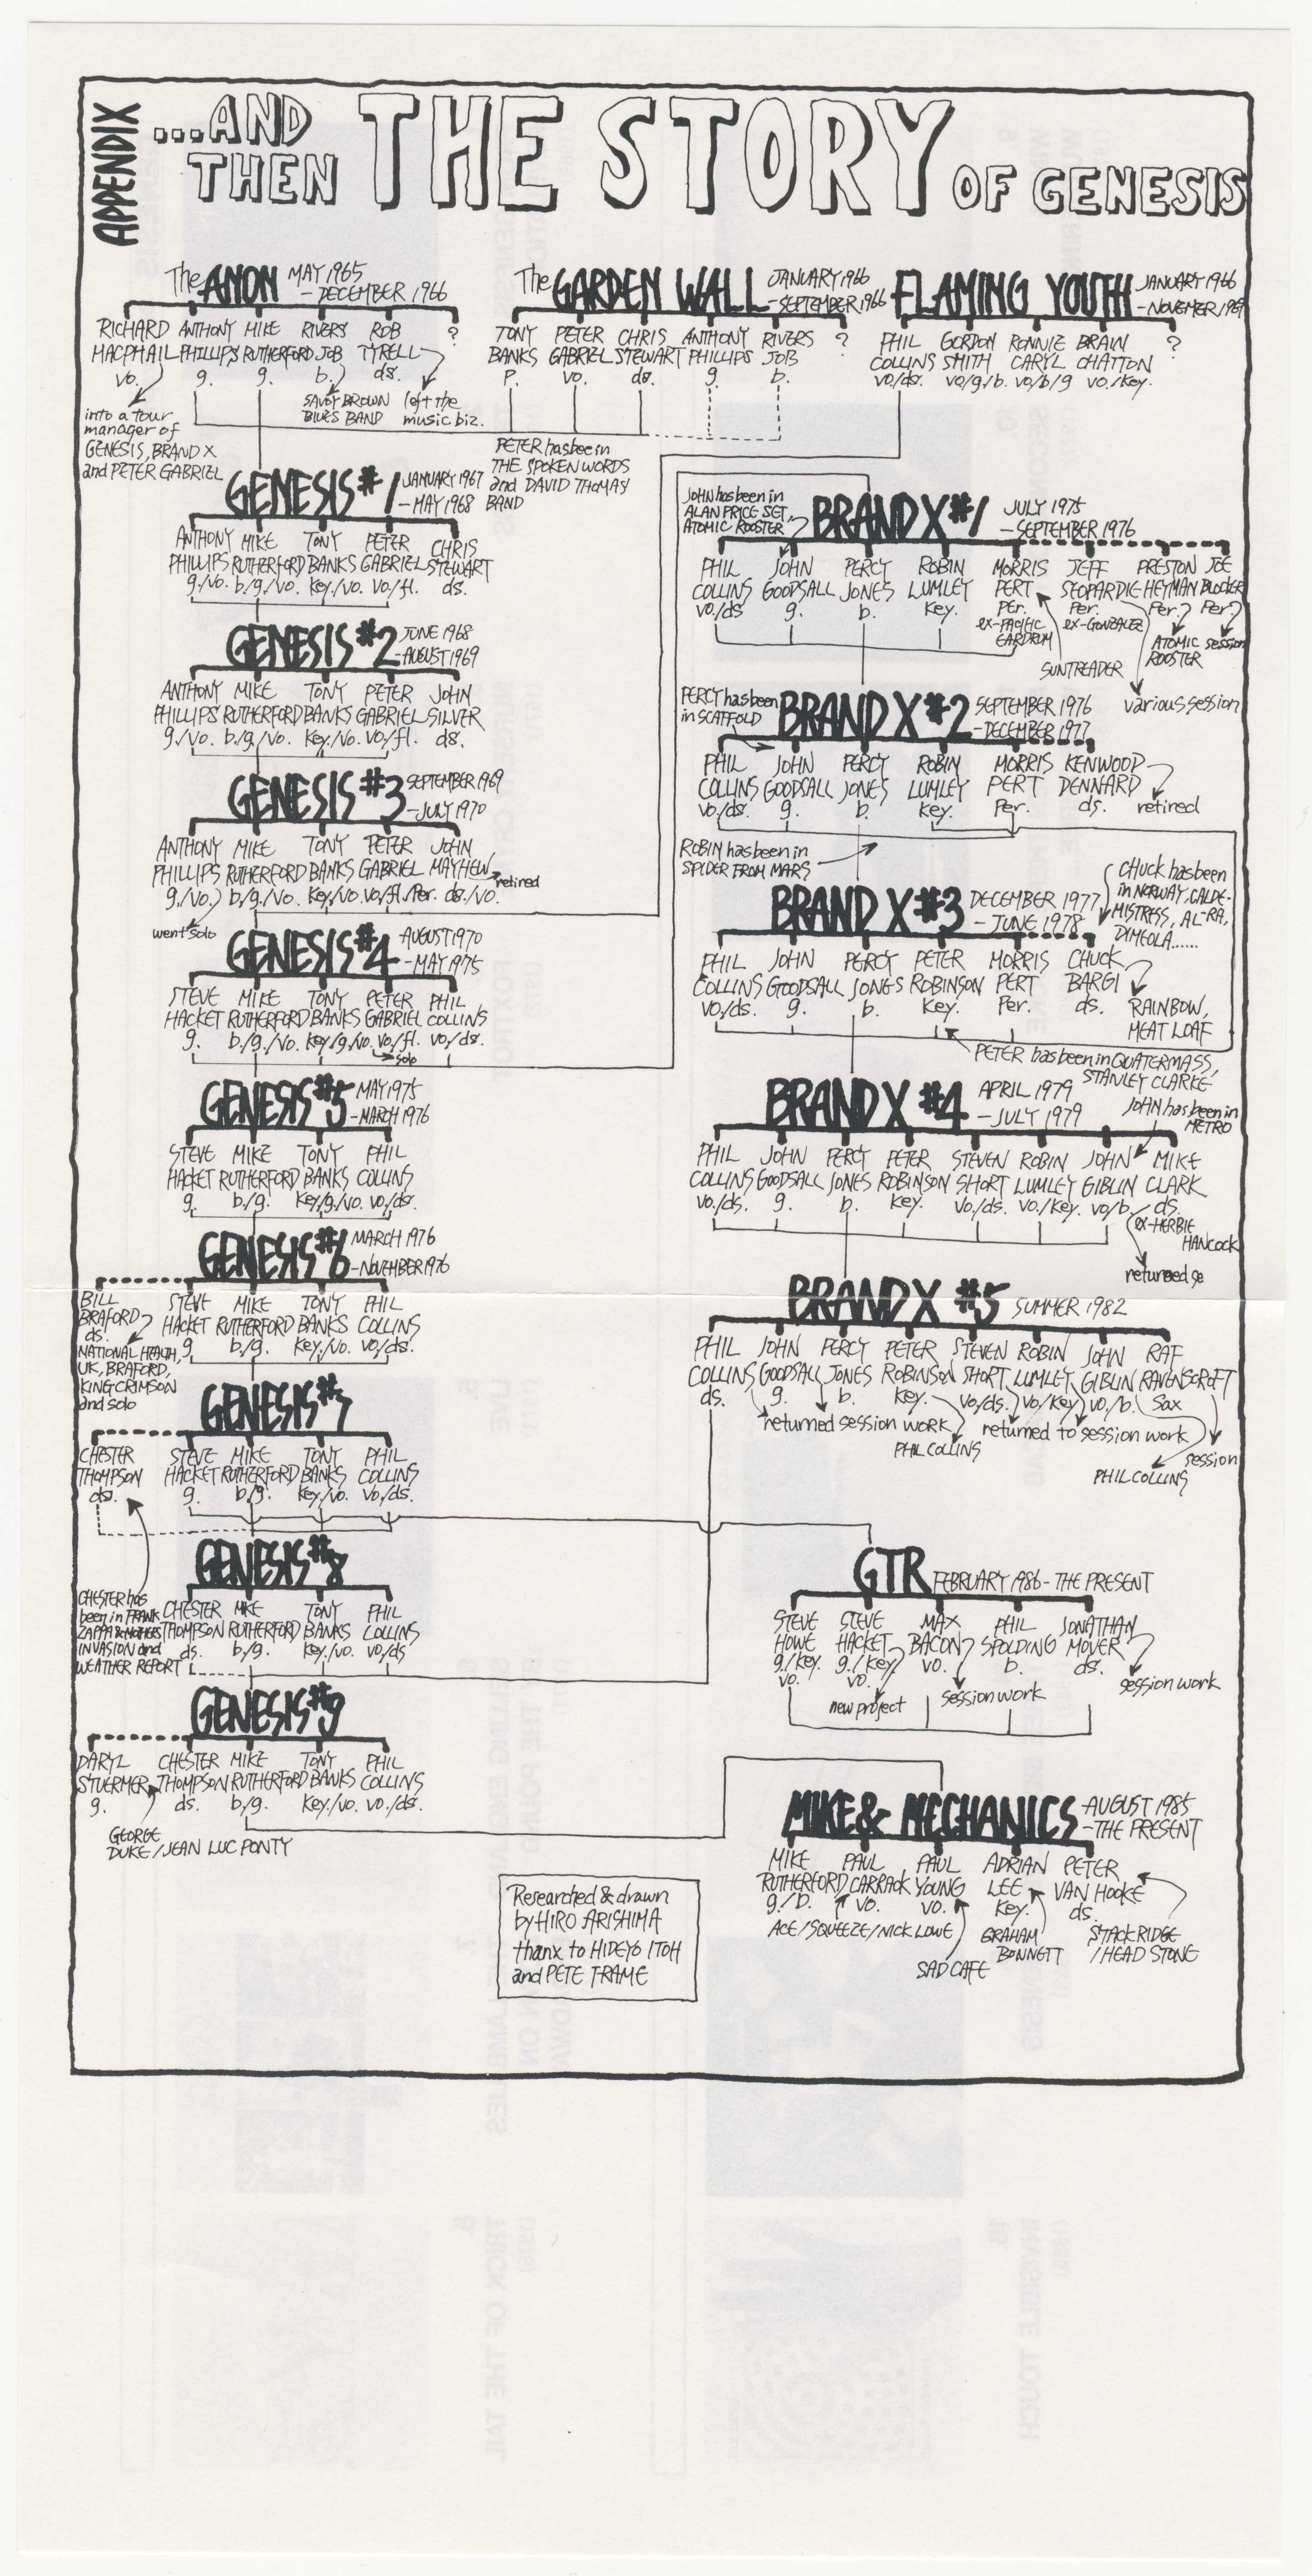 APPENDIX
...AND
THEN THE STORY OF GENESIS
The ANON MAY 1965
– DECEMBER 1966
RICHARD ANTHONY MIKE RIVERS ROB ?
MACPHAIL PHILLIPS RUTHERFORD JOB TYRELL
vo. g. g. b. ds.
into a tour
manager of
GENESIS, BRAND X
and PETER GABRIEL
SAVOY BROWN
BLUES BAND
left the
music biz.
The GARDEN WALL JANUARY 1966
– SEPTEMBER 1966
TONY PETER CHRIS ANTHONY RIVERS ?
BANKS GABRIEL STEWART PHILLIPS JOB
P. vo. ds. g. b.
PETER has been in
THE SPOKEN WORDS
and DAVID THOMAS
BAND
FLAMING YOUTH JANUARY 1966
– NOVEMBER 1969
PHIL GORDON RONNIE BRAIN ?
COLLINS SMITH CARYL CHATTON
vo/ds. vo/g/b. vo/b/g vo./key.
GENESIS #1 JANUARY 1967
– MAY 1968
ANTHONY MIKE TONY PETER CHRIS
PHILLIPS RUTHERFORD BANKS GABRIEL STEWART
g./vo. b/g./vo. key./vo. vo/fl. ds.
GENESIS #2 JUNE 1968
– AUGUST 1969
ANTHONY MIKE TONY PETER JOHN
PHILLIPS RUTHERFORD BANKS GABRIEL SILVER
g./vo. b/g./vo. key./vo. vo/fl. ds.
GENESIS #3 SEPTEMBER 1969
– JULY 1970
ANTHONY MIKE TONY PETER JOHN
PHILLIPS RUTHERFORD BANKS GABRIEL MAYHEW
g./vo. b/g./vo. key/vo. vo/fl./Per. ds./vo.
retired
went solo
GENESIS #4 AUGUST 1970
– MAY 1975
STEVE MIKE TONY PETER PHIL
HACKET RUTHERFORD BANKS GABRIEL COLLINS
g. b./g./vo. key/g./vo. vo/fl. vo./ds.
solo
GENESIS #5 MAY 1975
– MARCH 1976
STEVE MIKE TONY PHIL
HACKET RUTHERFORD BANKS COLLINS
g. b/g. key/g/vo. vo/ds.
GENESIS #6 MARCH 1976
– NOVEMBER 1976
BILL STEVE MIKE TONY PHIL
BRAFORD HACKET RUTHERFORD BANKS COLLINS
ds. g. b/g. key./vo. vo/ds.
NATIONAL HEALTH,
UK, BRAFORD,
KING CRIMSON
and solo
GENESIS #7
CHESTER STEVE MIKE TONY PHIL
THOMPSON HACKET RUTHERFORD BANKS COLLINS
ds. g. b/g. key/vo. vo/ds.
GENESIS #8
CHESTER MIKE TONY PHIL
THOMPSON RUTHERFORD BANKS COLLINS
ds. b/g. key./vo. vo/ds
CHESTER has
been in FRANK
ZAPPA & MOTHERS
INVASION and
WEATHER REPORT
GENESIS #9
DARYL CHESTER MIKE TONY PHIL
STUERMER THOMPSON RUTHERFORD BANKS COLLINS
g. ds. b/g. key./vo. vo./ds.
GEORGE
DUKE / JEAN LUC PONTY
JOHN has been in
ALAN PRICE SET,
ATOMIC ROOSTER
BRAND X #1 JULY 1975
– SEPTEMBER 1976
PHIL JOHN PERCY ROBIN MORRIS JEFF PRESTON JOE
COLLINS GOODSALL JONES LUMLEY PERT SEOPARDIE HEYMAN BLOCKER
vo/ds g. b. key. Per. Per. Per.? Per.?
ex-PACIFIC
EARDRUM
ex-GONZALEZ
SUNTREADER
ATOMIC
ROOSTER
session
various session
PERCY has been
in SCAFFOLD
BRAND X #2 SEPTEMBER 1976
– DECEMBER 1977
PHIL JOHN PERCY ROBIN MORRIS KENWOOD
COLLINS GOODSALL JONES LUMLEY PERT DENNARD
vo./ds. g. b. key. Per. ds.
retired
ROBIN has been in
SPIDER FROM MARS
BRAND X #3 DECEMBER 1977
– JUNE 1978
CHUCK has been
in NORWAY, CALDE-
MISTRESS, AL-RA,
DIMEOLA......
PHIL JOHN PERCY PETER MORRIS CHUCK
COLLINS GOODSALL JONES ROBINSON PERT BARGI
vo./ds. g. b. key. Per. ds.
RAINBOW,
MEAT LOAF
PETER has been in QUATERMASS,
STANLEY CLARKE
BRAND X #4 APRIL 1979
– JULY 1979
JOHN has been in
METRO
PHIL JOHN PERCY PETER STEVEN ROBIN JOHN MIKE
COLLINS GOODSALL JONES ROBINSON SHORT LUMLEY GIBLIN CLARK
vo./ds. g. b. key. vo./ds. vo./key. vo/b. ds.
ex-HERBIE
HANCOCK
returned se
BRAND X #5 SUMMER 1982
PHIL JOHN PERCY PETER STEVEN ROBIN JOHN RAF
COLLINS GOODSALL JONES ROBINSON SHORT LUMLEY GIBLIN RAVENSCROFT
ds. g. b. key. vo/ds. vo/key vo./b. Sax
returned session work
PHIL COLLINS
returned to session work
session
PHIL COLLINS
GTR FEBRUARY 1986 – THE PRESENT
STEVE STEVE MAX PHIL JONATHAN
HOWE HACKET BACON SPOLDING MOVER
g./key. g./key. vo. b. ds.
vo. vo.
new project
session work
session work
MIKE & MECHANICS AUGUST 1985
– THE PRESENT
MIKE PAUL PAUL ADRIAN PETER
RUTHERFORD CARRACK YOUNG LEE VAN HOOKE
g./b. vo. vo. key. ds.
ACE / SQUEEZE / NICK LOWE
SAD CAFE
GRAHAM
BONNETT
STACKRIDGE
/ HEAD STONE
Researched & drawn
by HIRO ARISHIMA
thanx to HIDEYO ITOH
and PETE FRAME